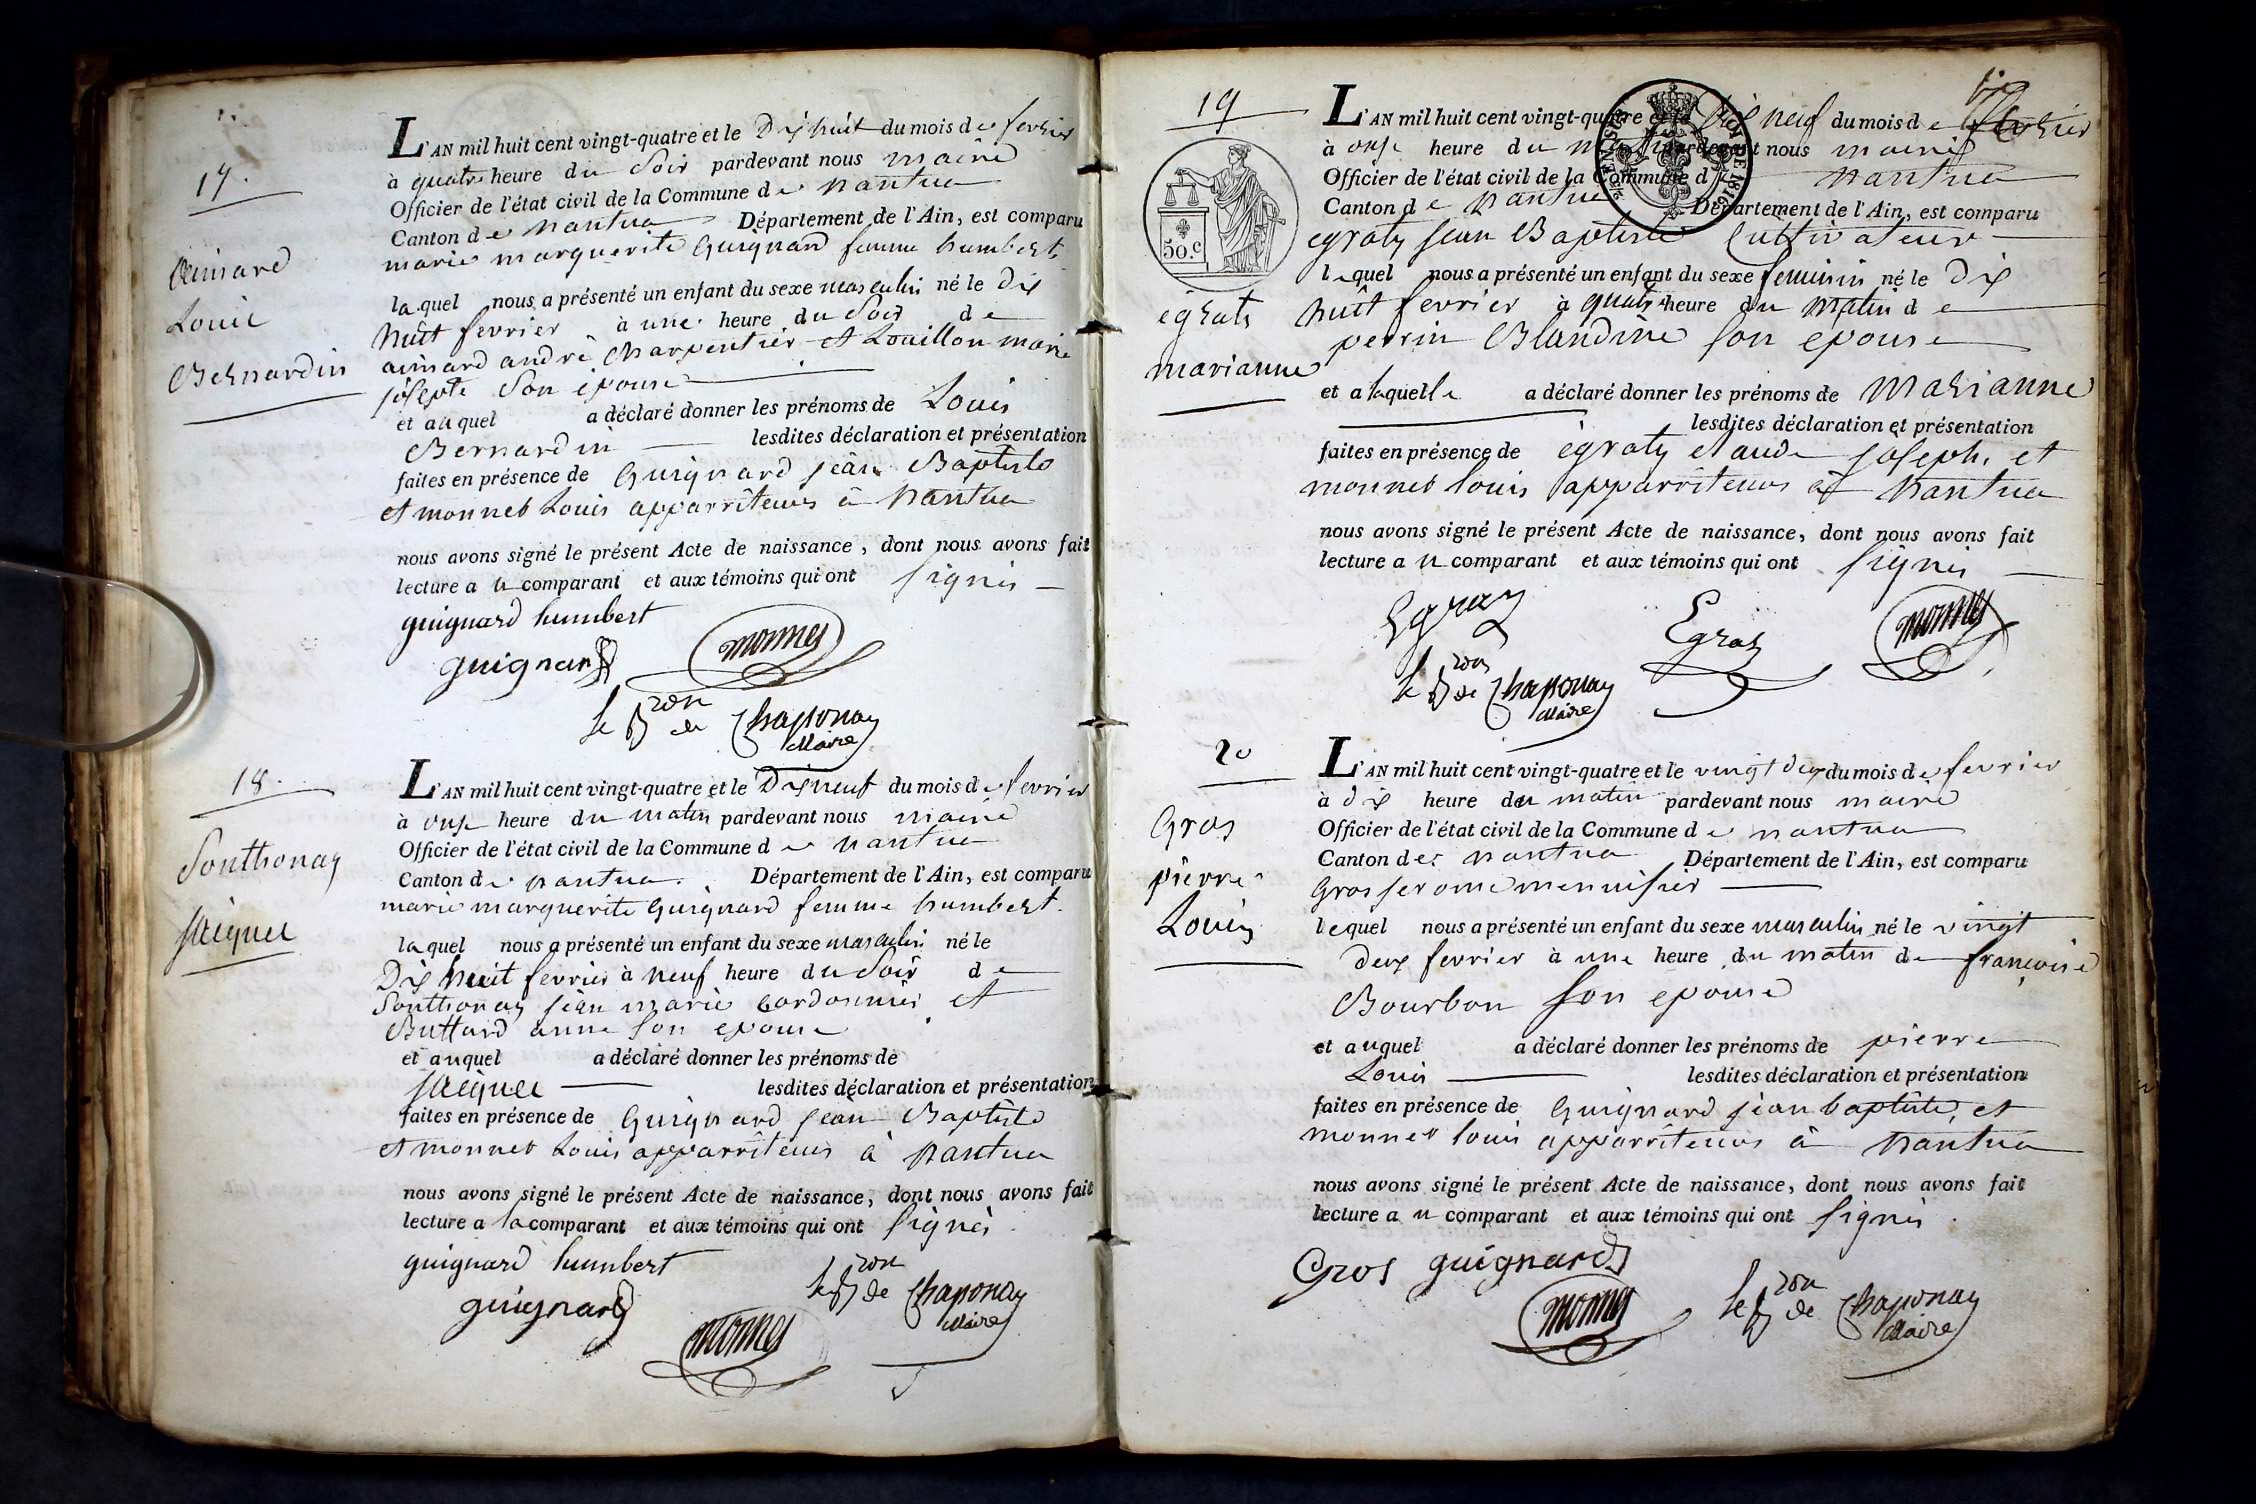 17.
aimard
Louis
Bernardin
L'AN mil huit cent vingt-quatre et le Dix huit du mois de fevrier
à quatre heure du Soir pardevant nous maire
Officier de l'état civil de la Commune de nantua
Canton de nantua Département de l'Ain, est comparu
marie marguerite Guignard femme humbert
laquel nous a présenté un enfant du sexe masculin né le dix
huit fevrier à une heure du Soir de
aimard andré Charpentier et Louillon marie
josepte Son épouse
et auquel a déclaré donner les prénoms de Louis
Bernardin lesdites déclaration et présentation
faites en présence de Guignard jean Baptiste
et monnet Louis apparriteurs à nantua
nous avons signé le présent Acte de naissance, dont nous avons fait
lecture au comparant et aux témoins qui ont signés
guignard humbert
guignard monnet
le Bron de Chaponay
Maire
18.
Sonthonay
jacques
L'AN mil huit cent vingt-quatre et le Dix neuf du mois de fevrier
à onze heure du matin pardevant nous maire
Officier de l'état civil de la Commune de nantua
Canton de nantua. Département de l'Ain, est comparu
marie marguerite Guignard femme humbert.
laquel nous a présenté un enfant du sexe masculin né le
Dix huit fevrier à neuf heure du Soir de
Sonthonay jean marie cordonnier et
Buttard anne son epouse
et auquel a déclaré donner les prénoms de
jacques lesdites déclaration et présentation
faites en présence de Guignard jean Baptiste
et monnet Louis apparriteurs à nantua
nous avons signé le présent Acte de naissance, dont nous avons fait
lecture a la comparant et aux témoins qui ont signés
guignard humbert
guignard monnet
le Bron de Chaponay
Maire
19
50.c
égraty
marianne
LOI DE 1816
L'AN mil huit cent vingt-quatre et le Dix neuf du mois de fevrier
à onze heure du matin pardevant nous maire
Officier de l'état civil de la Commune d nantua
Canton de nantua Département de l'Ain, est comparu
egraty jean Baptiste Cultivateur
lequel nous a présenté un enfant du sexe feminin né le dix
huit fevrier à quatre heure du matin de
perrin Blandine son epouse
et a laquelle a déclaré donner les prénoms de marianne
lesdites déclaration et présentation
faites en présence de égraty claude joseph, et
monnet louis apparriteurs à nantua
nous avons signé le présent Acte de naissance, dont nous avons fait
lecture au comparant et aux témoins qui ont signés
Egraz Egraz monnet
le Bron de Chaponay
Maire
20
Gros
pierre
Louis
L'AN mil huit cent vingt-quatre et le vingt deux du mois de fevrier
à dix heure du matin pardevant nous maire
Officier de l'état civil de la Commune de nantua
Canton de nantua Département de l'Ain, est comparu
Gros jerome menuisier
lequel nous a présenté un enfant du sexe masculin né le vingt
deux fevrier à une heure du matin de françoise
Bourbon son epouse
et auquel a déclaré donner les prénoms de pierre
Louis lesdites déclaration et présentation
faites en présence de Guignard jean baptiste, et
monnet louis apparriteurs à nantua
nous avons signé le présent Acte de naissance, dont nous avons fait
lecture au comparant et aux témoins qui ont signés
Gros guignard
monnet le Bron de Chaponay
Maire